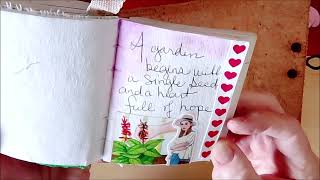 A garden
begins with
a single seed
and a heart
full of hope